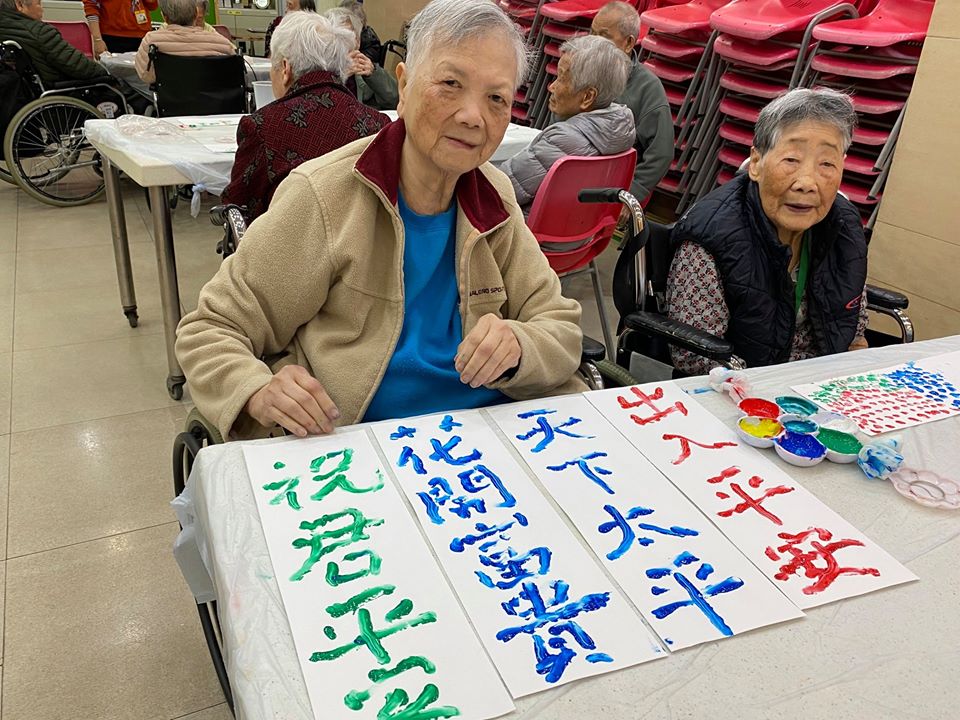 祝君平安
花開富貴
天下太平
出入平安